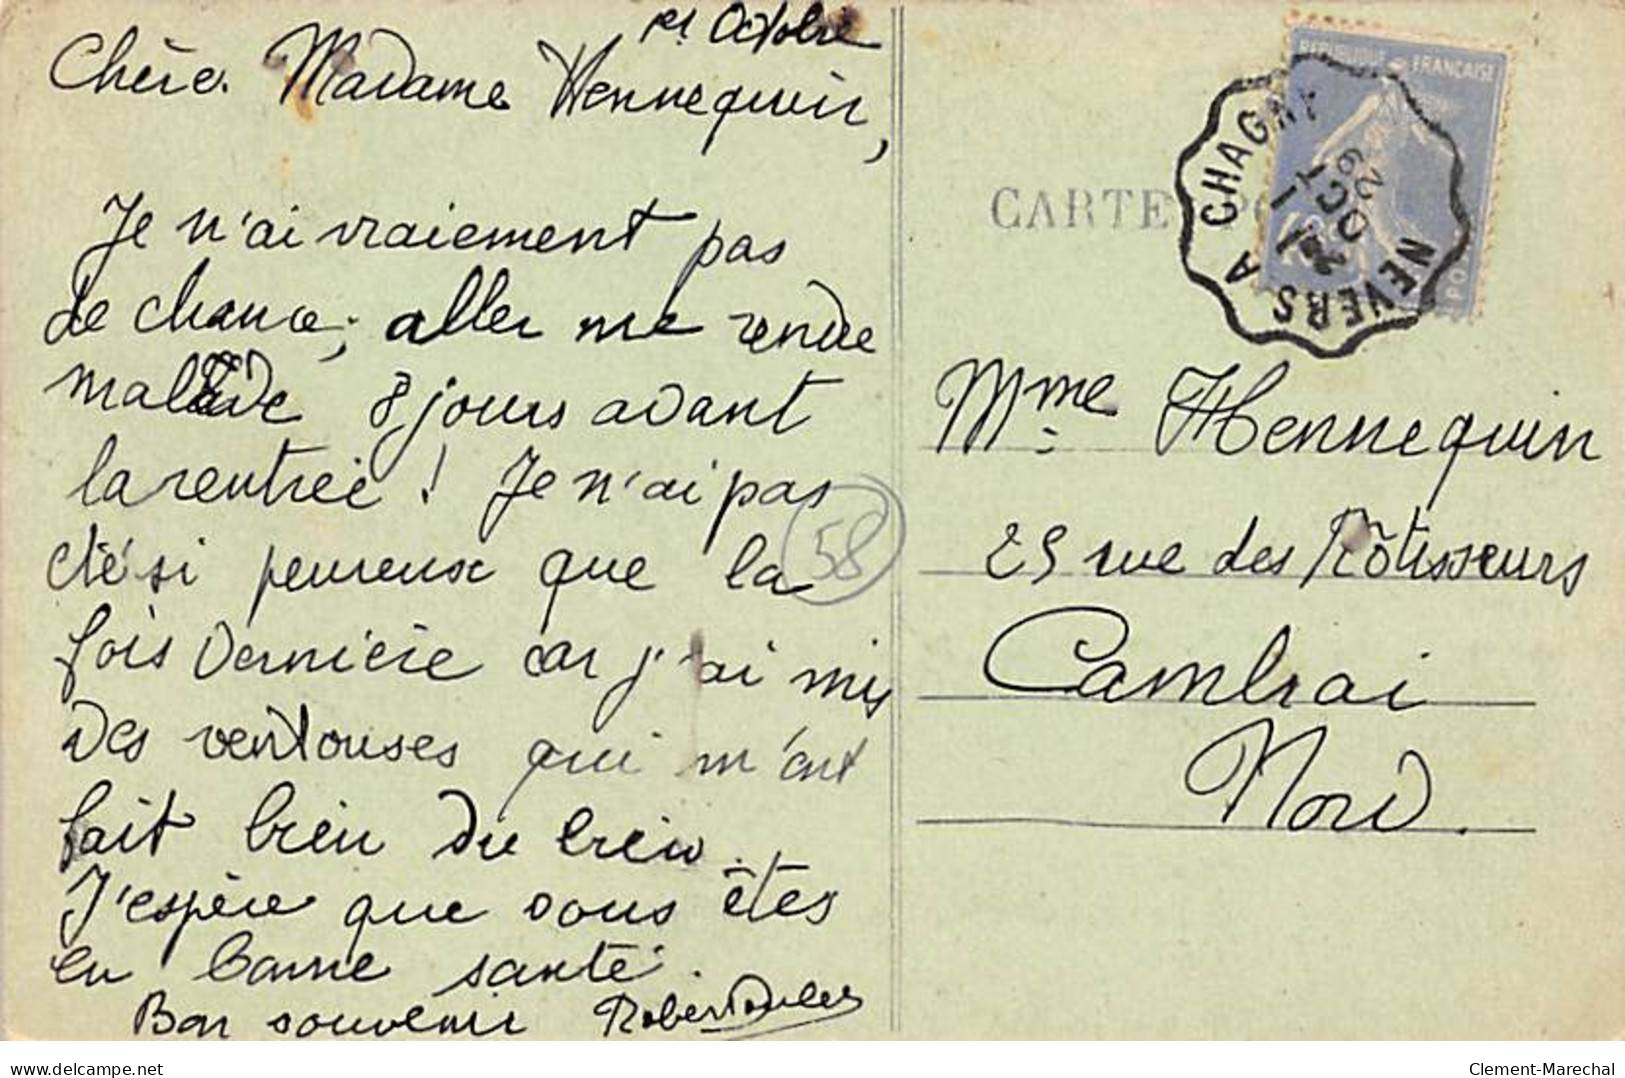 1er Octobre
Chère Madame Hennequin,
Je n'ai vraiement pas
de chance; aller me rendre
malade 8 jours avant
la rentrée ! Je n'ai pas
été si peureux que la
fois dernière car j'ai mis
des ventouses qui m'ont
fait bien du bien.
J'espère que vous êtes
en bonne santé.
Bon souvenir Robert
58
CARTE
REPUBLIQUE FRANÇAISE
NEVERS A CHAGNY
1 OCT
29
Mme Hennequin
25 rue des Rôtisseurs
Cambrai
Nord.
delcampe.net
Clement-Marechal